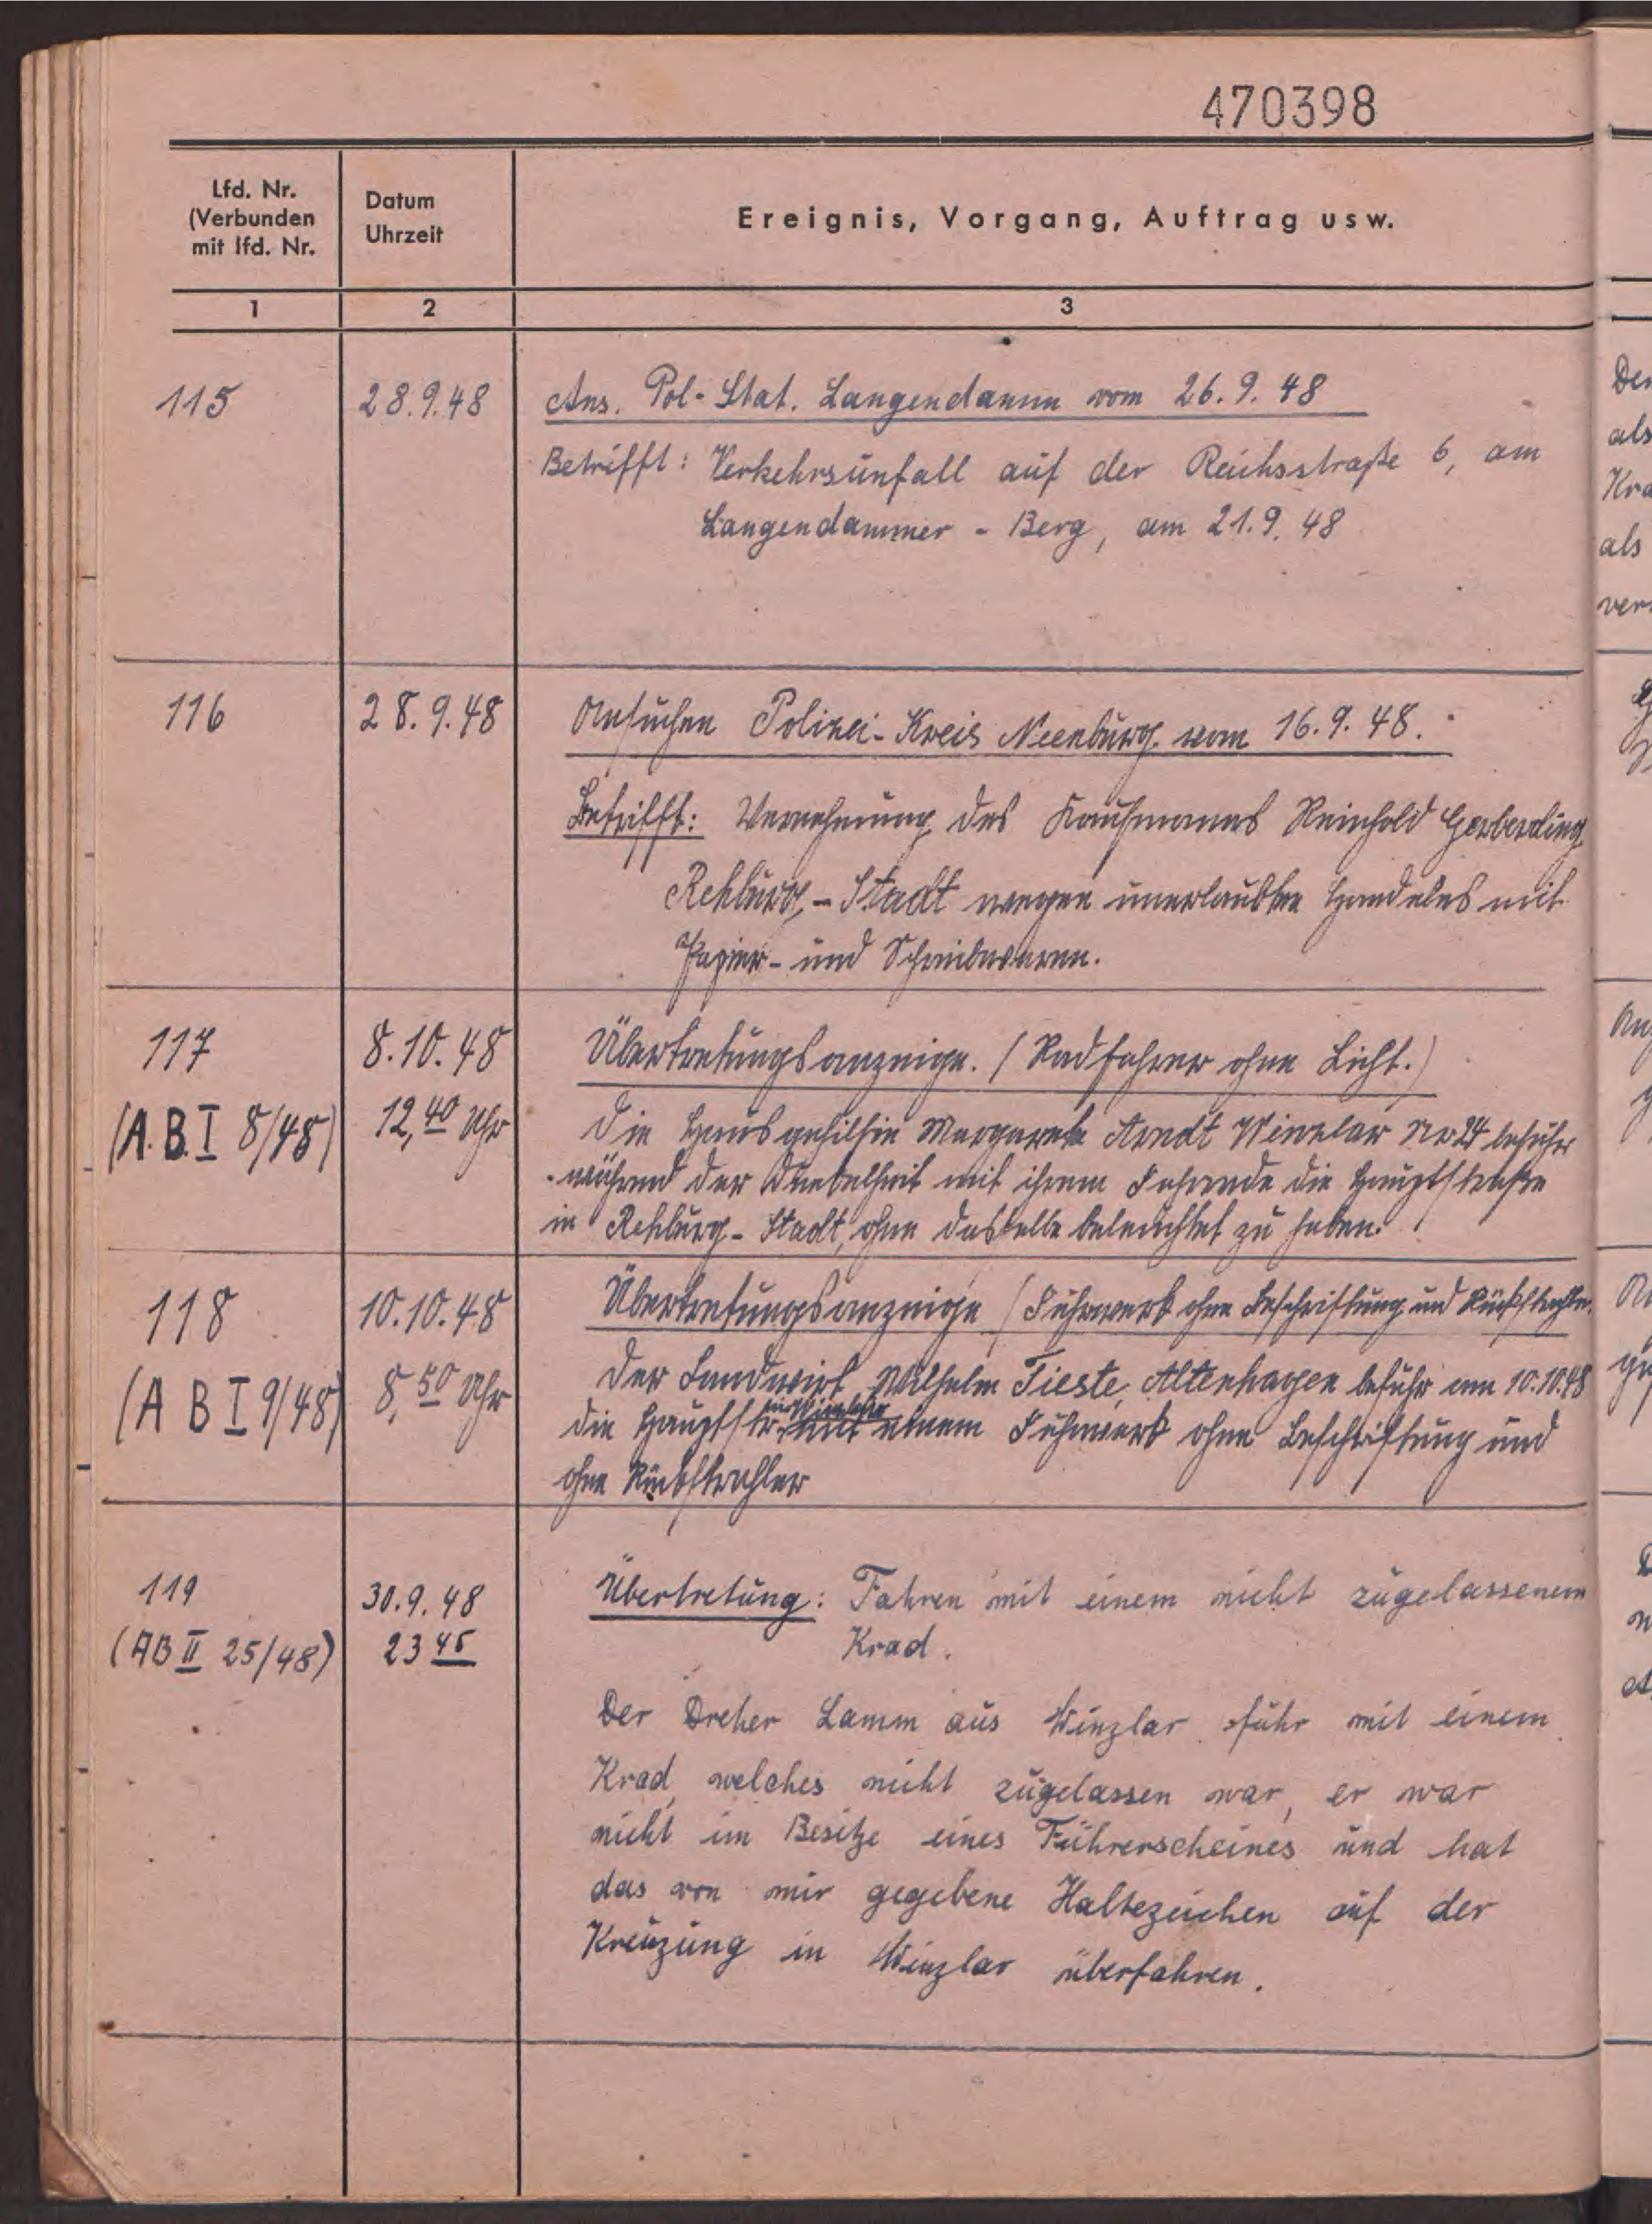 470398
Lfd. Nr.
(Verbunden
mit lfd. Nr.
Datum
Uhrzeit
Ereignis, Vorgang, Auftrag usw.
1
2
3
115
28.9.48
Ans. Pol-Stat. Langendamm vom 26.9.48
Betrifft: Verkehrsunfall auf der Reichsstraße 6, am
Langendammer-Berg, am 21.9.48
116
28.9.48
Ansuchen Polizei-Kreis Nienburg vom 16.9.48.
Betrifft: Vernehmung des Kaufmanns Reinhold Gerberding
Rehburg-Stadt wegen unerlaubten Handels mit
Papier- und Schreibwaren.
117
(A.B.I 8/48)
8.10.48
12,40 Uhr
Übertretungsanzeige. (Radfahrer ohne Licht.)
Die Hausgehilfin Margarete Arndt Winzlar Nr 24 befuhr
während der Dunkelheit mit ihrem Fahrrade die Hauptstraße
in Rehburg-Stadt, ohne dasselbe beleuchtet zu haben.
118
(A B I 9/48)
10.10.48
8,50 Uhr
Übertretungsanzeige (Fuhrwerk ohne Beschriftung und Rückstrahler.
Der Landwirt Wilhelm Tieste, Altenhagen befuhr am 10.10.48
in Winzlar
die Hauptstr. mit einem Fuhrwerk ohne Beschriftung und
ohne Rückstrahler
119
(AB II 25/48)
30.9.48
23 45
Übertretung: Fahren mit einem nicht zugelassenem
Krad.
Der Dreher Lamm aus Winzlar fuhr mit einem
Krad, welches nicht zugelassen war, er war
nicht im Besitze eines Führerscheines und hat
das von mir gegebene Haltezeichen auf der
Kreuzung in Winzlar überfahren.
als
Kra
als